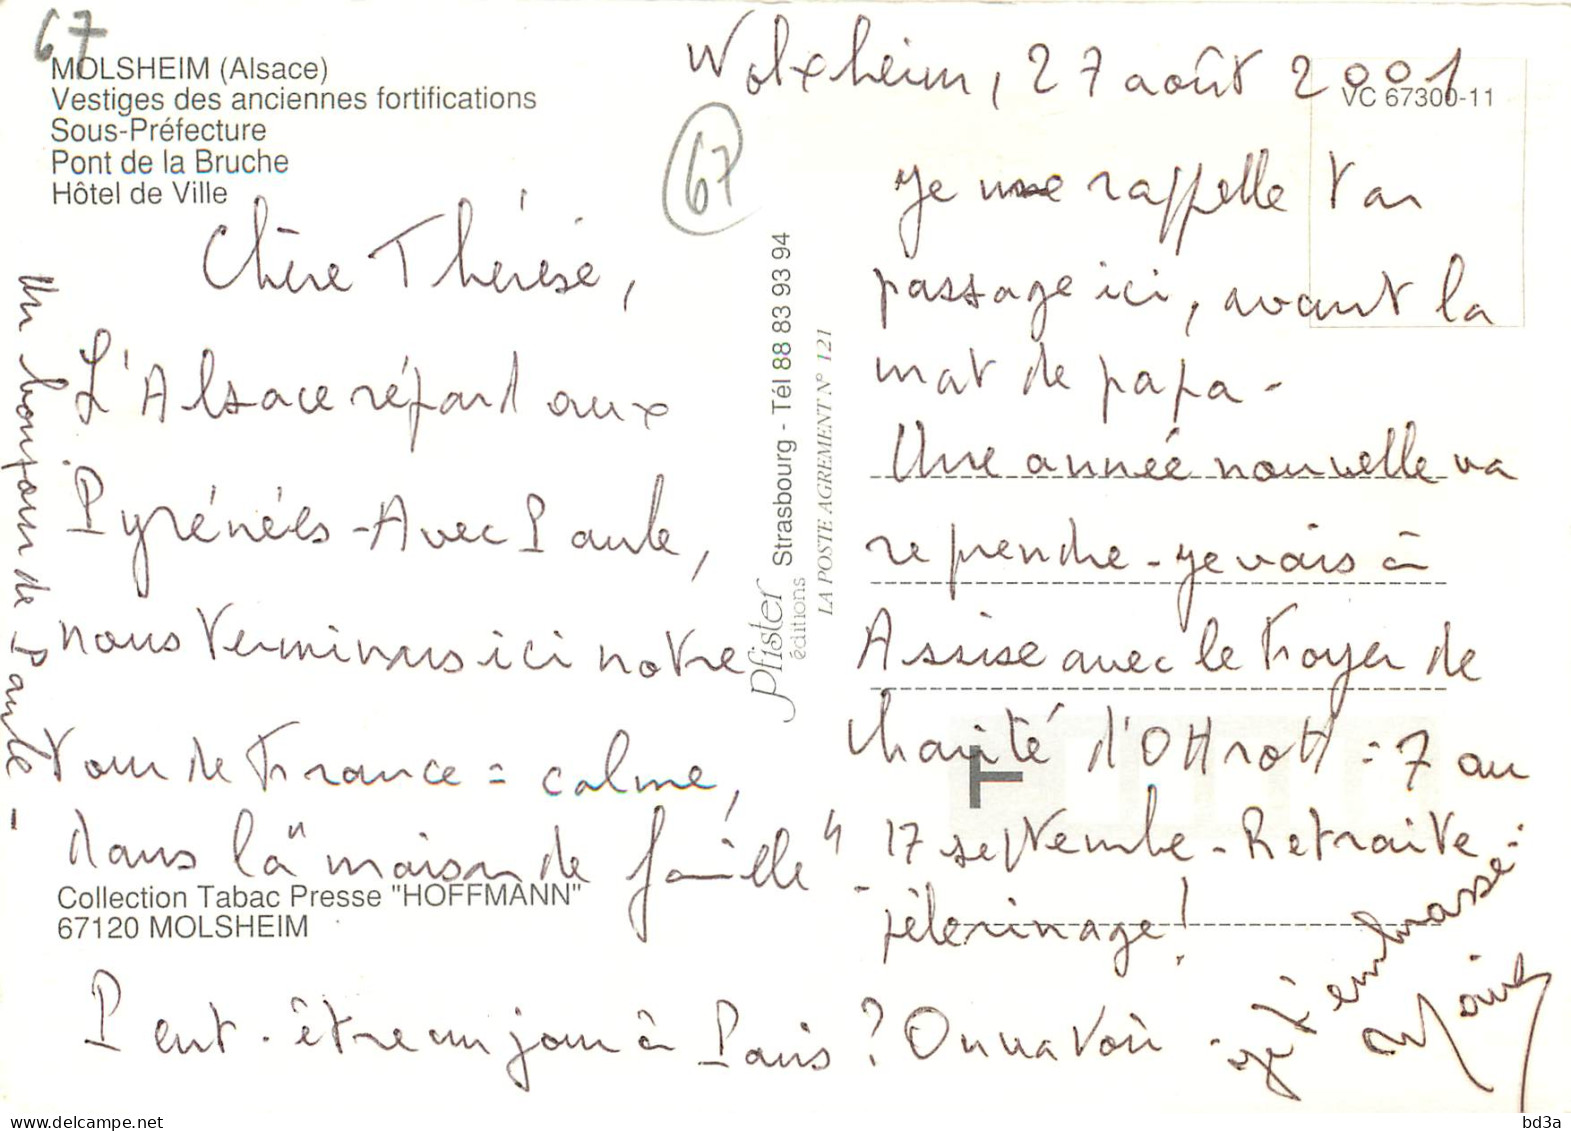 67
MOLSHEIM (Alsace)
Vestiges des anciennes fortifications
Sous-Préfecture
Pont de la Bruche
Hôtel de Ville
67
Wolxheim, 27 août 2001
VC 67300-11
Chère Thérèse,
L'Alsace répond aux
Pyrénées - Avec Paule,
nous terminons ici notre
tour de France = calme,
dans la "maison de famille" -
Collection Tabac Presse "HOFFMANN"
67120 MOLSHEIM
Pfister
éditions
Strasbourg - Tél 88 83 93 94
LA POSTE AGREMENT N° 121
Je me rappelle ton
passage ici, avant la
mort de papa -
Une année nouvelle va
reprendre - je vais à
Assise avec le Foyer de
Charité d'Ottrott = 7 au
T
17 septembre - Retraite -
pèlerinage !
Peut-être un jour à Paris ? On va voir -
je t'embrasse -
Un bonjour de Paule -
bd3a